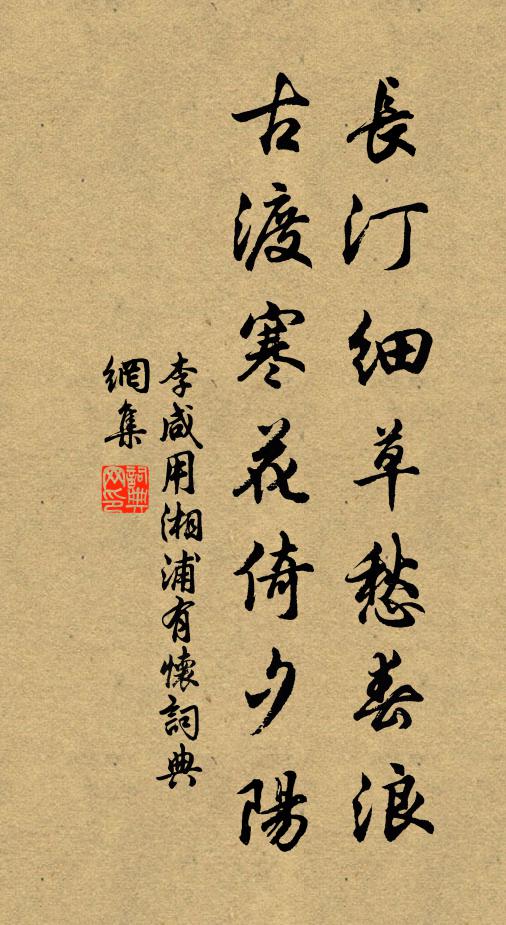 長汀細草愁春浪
古渡寒花倚夕陽
李咸用湘浦有懷詞典
網集
詞典
网印